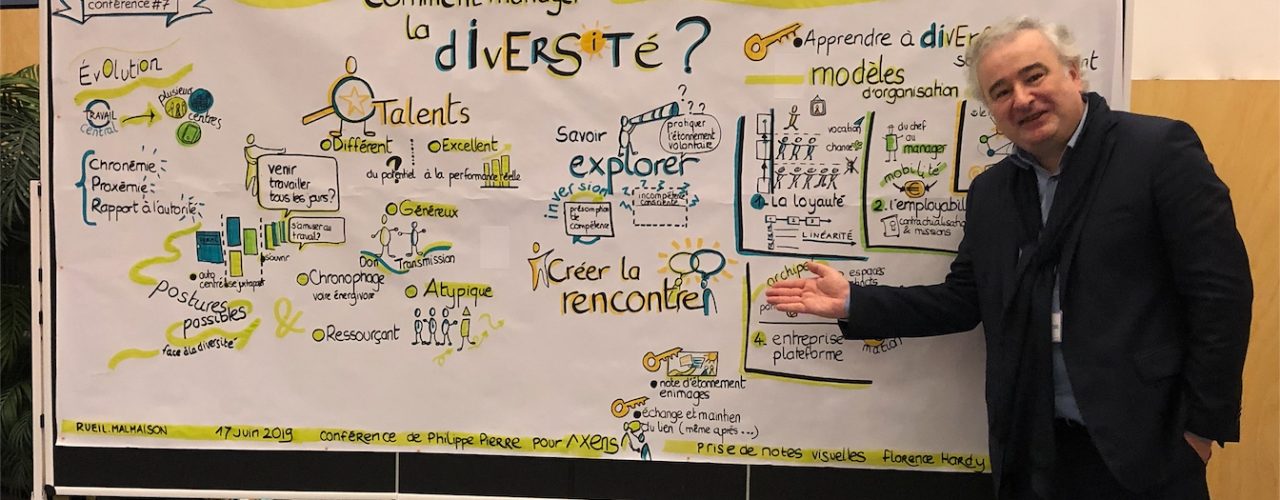 conférence #7
Comment manager
la diversité ?
Évolution
TRAVAIL
central
plusieurs
centres
Chronémie
Proxémie
Rapport à l'autorité
venir
travailler
tous les jours?
s'amuser au
travail?
auto
centré
ouvrir
postures
possibles
face à la diversité
&
Talents
Différent
Excellent
du potentiel à la performance réelle
?
Généreux
Don
Transmission
Chronophage
voire énergivore
Atypique
Ressourçant
Savoir
explorer
? ? ?
pratiquer
l'étonnement
volontaire
inversion
présomption
de
compétence
incompétence
consciente
Créer la
rencontre
note d'étonnement
en images
échange et maintien
du lien (même après...)
Apprendre à
modèles
d'organisation
vocation
1. La loyauté
LINÉARITÉ
du chef
au
manager
mobilité
€
2. l'employabil
contractualisation
& missions
archipel
espaces
4. entreprise
plateforme
mation
RUEIL.MALMAISON
17 juin 2019
conférence de Philippe PIERRE pour AXENS
prise de notes visuelles Florence Hardy